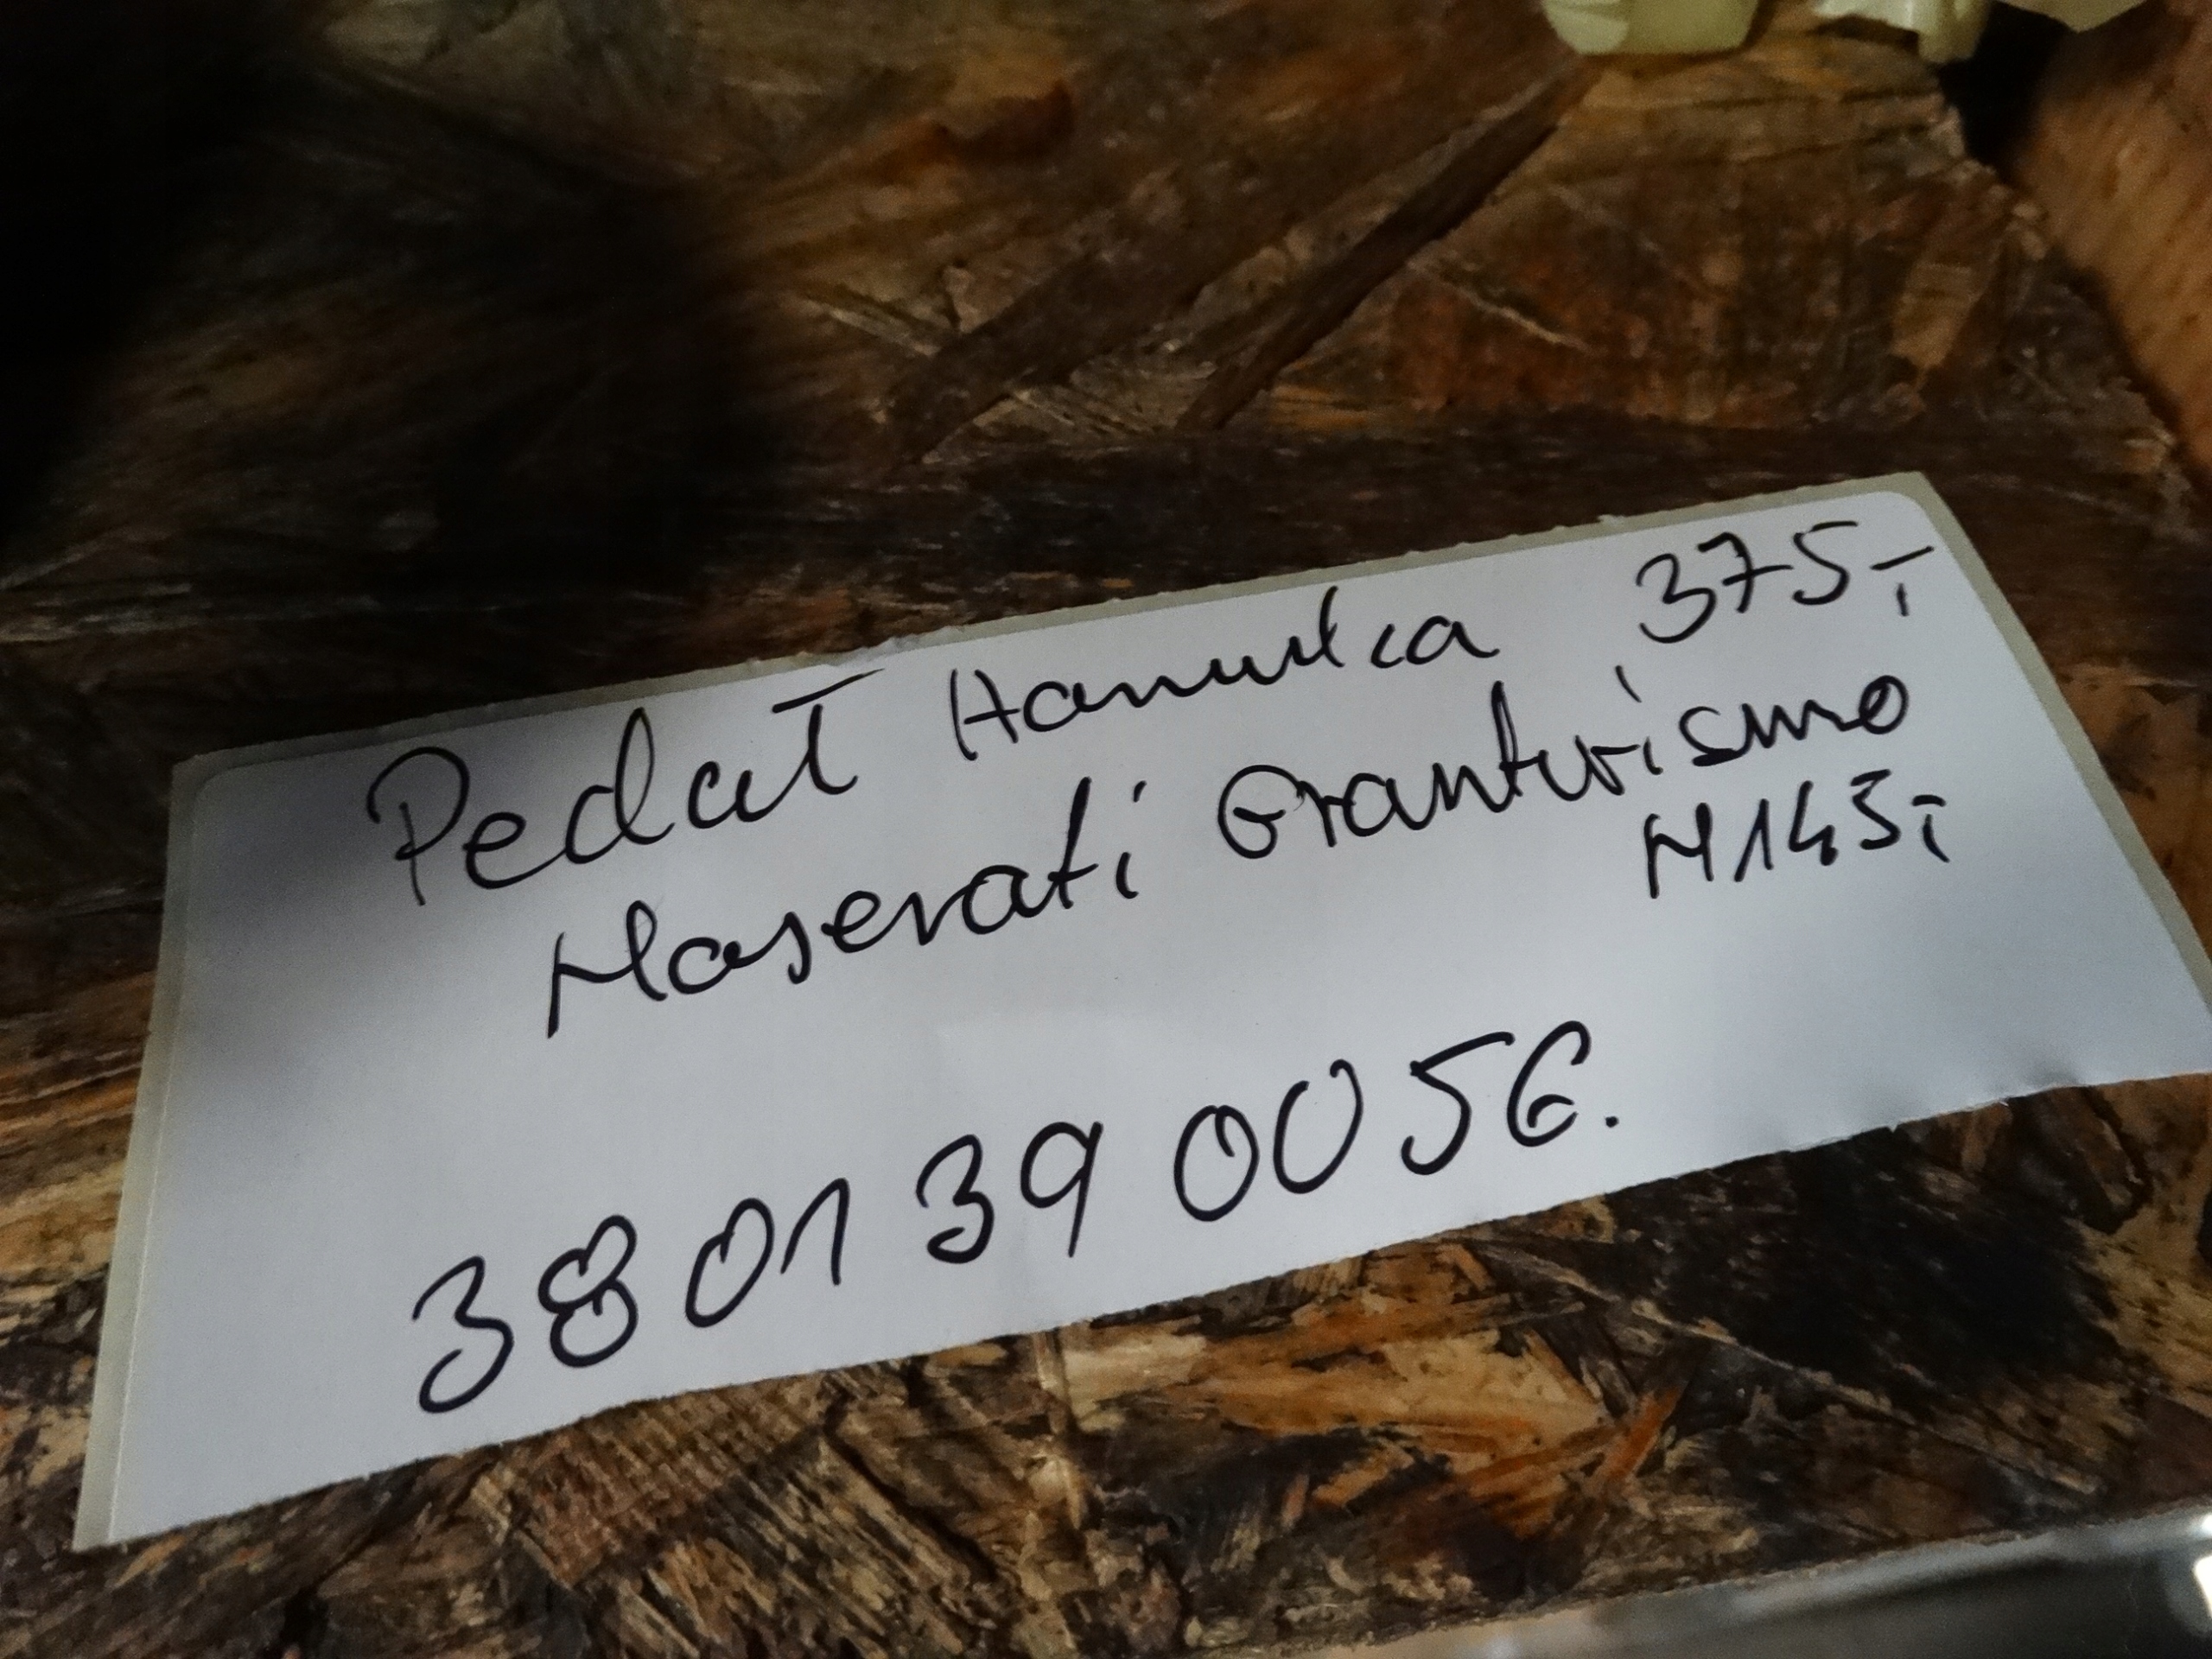 Pedał Hamulca 375,-
Maserati Granturismo
M145,-
380139 0056.